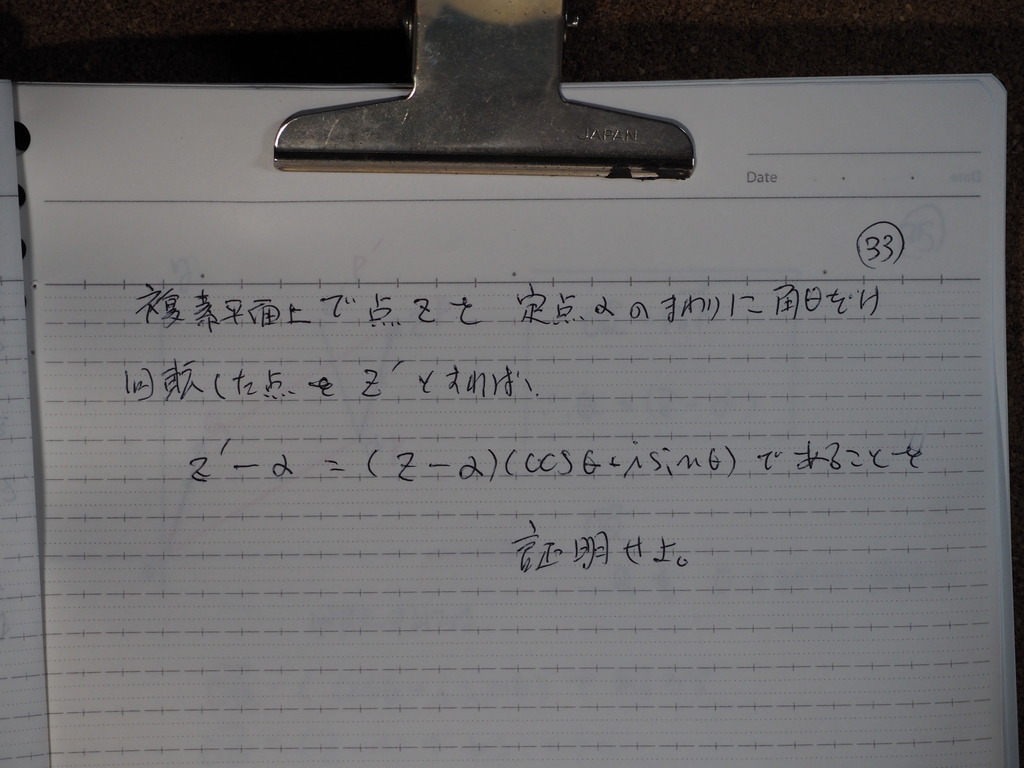 JAPAN
Date
33
複素平面上で点zを 定点αのまわりに角θだけ
回転した点を z′とすれば、
z′-α = (z-α)(cosθ+isinθ) であることを
証明せよ。